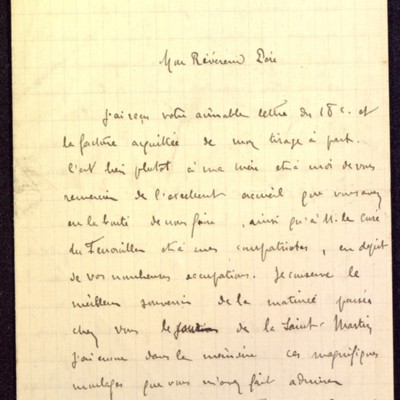 Mon Révérend Père
J'ai reçu votre aimable lettre du 18 c. et
la facture acquittée de mon tirage à part.
C'est bien plutôt à ma mère et à moi de vous
remercier de l'excellent accueil que vous avez
eu la bonté de nous faire, ainsi qu'à M. le curé
du Fenouiller et à mes compatriotes, en dépit
de vos nombreuses occupations. Je conserve le
meilleur souvenir de la matinée passée
chez vous le de la Saint-Martin
J'ai encore dans la mémoire ces magnifiques
moulages que vous m'avez fait admirer